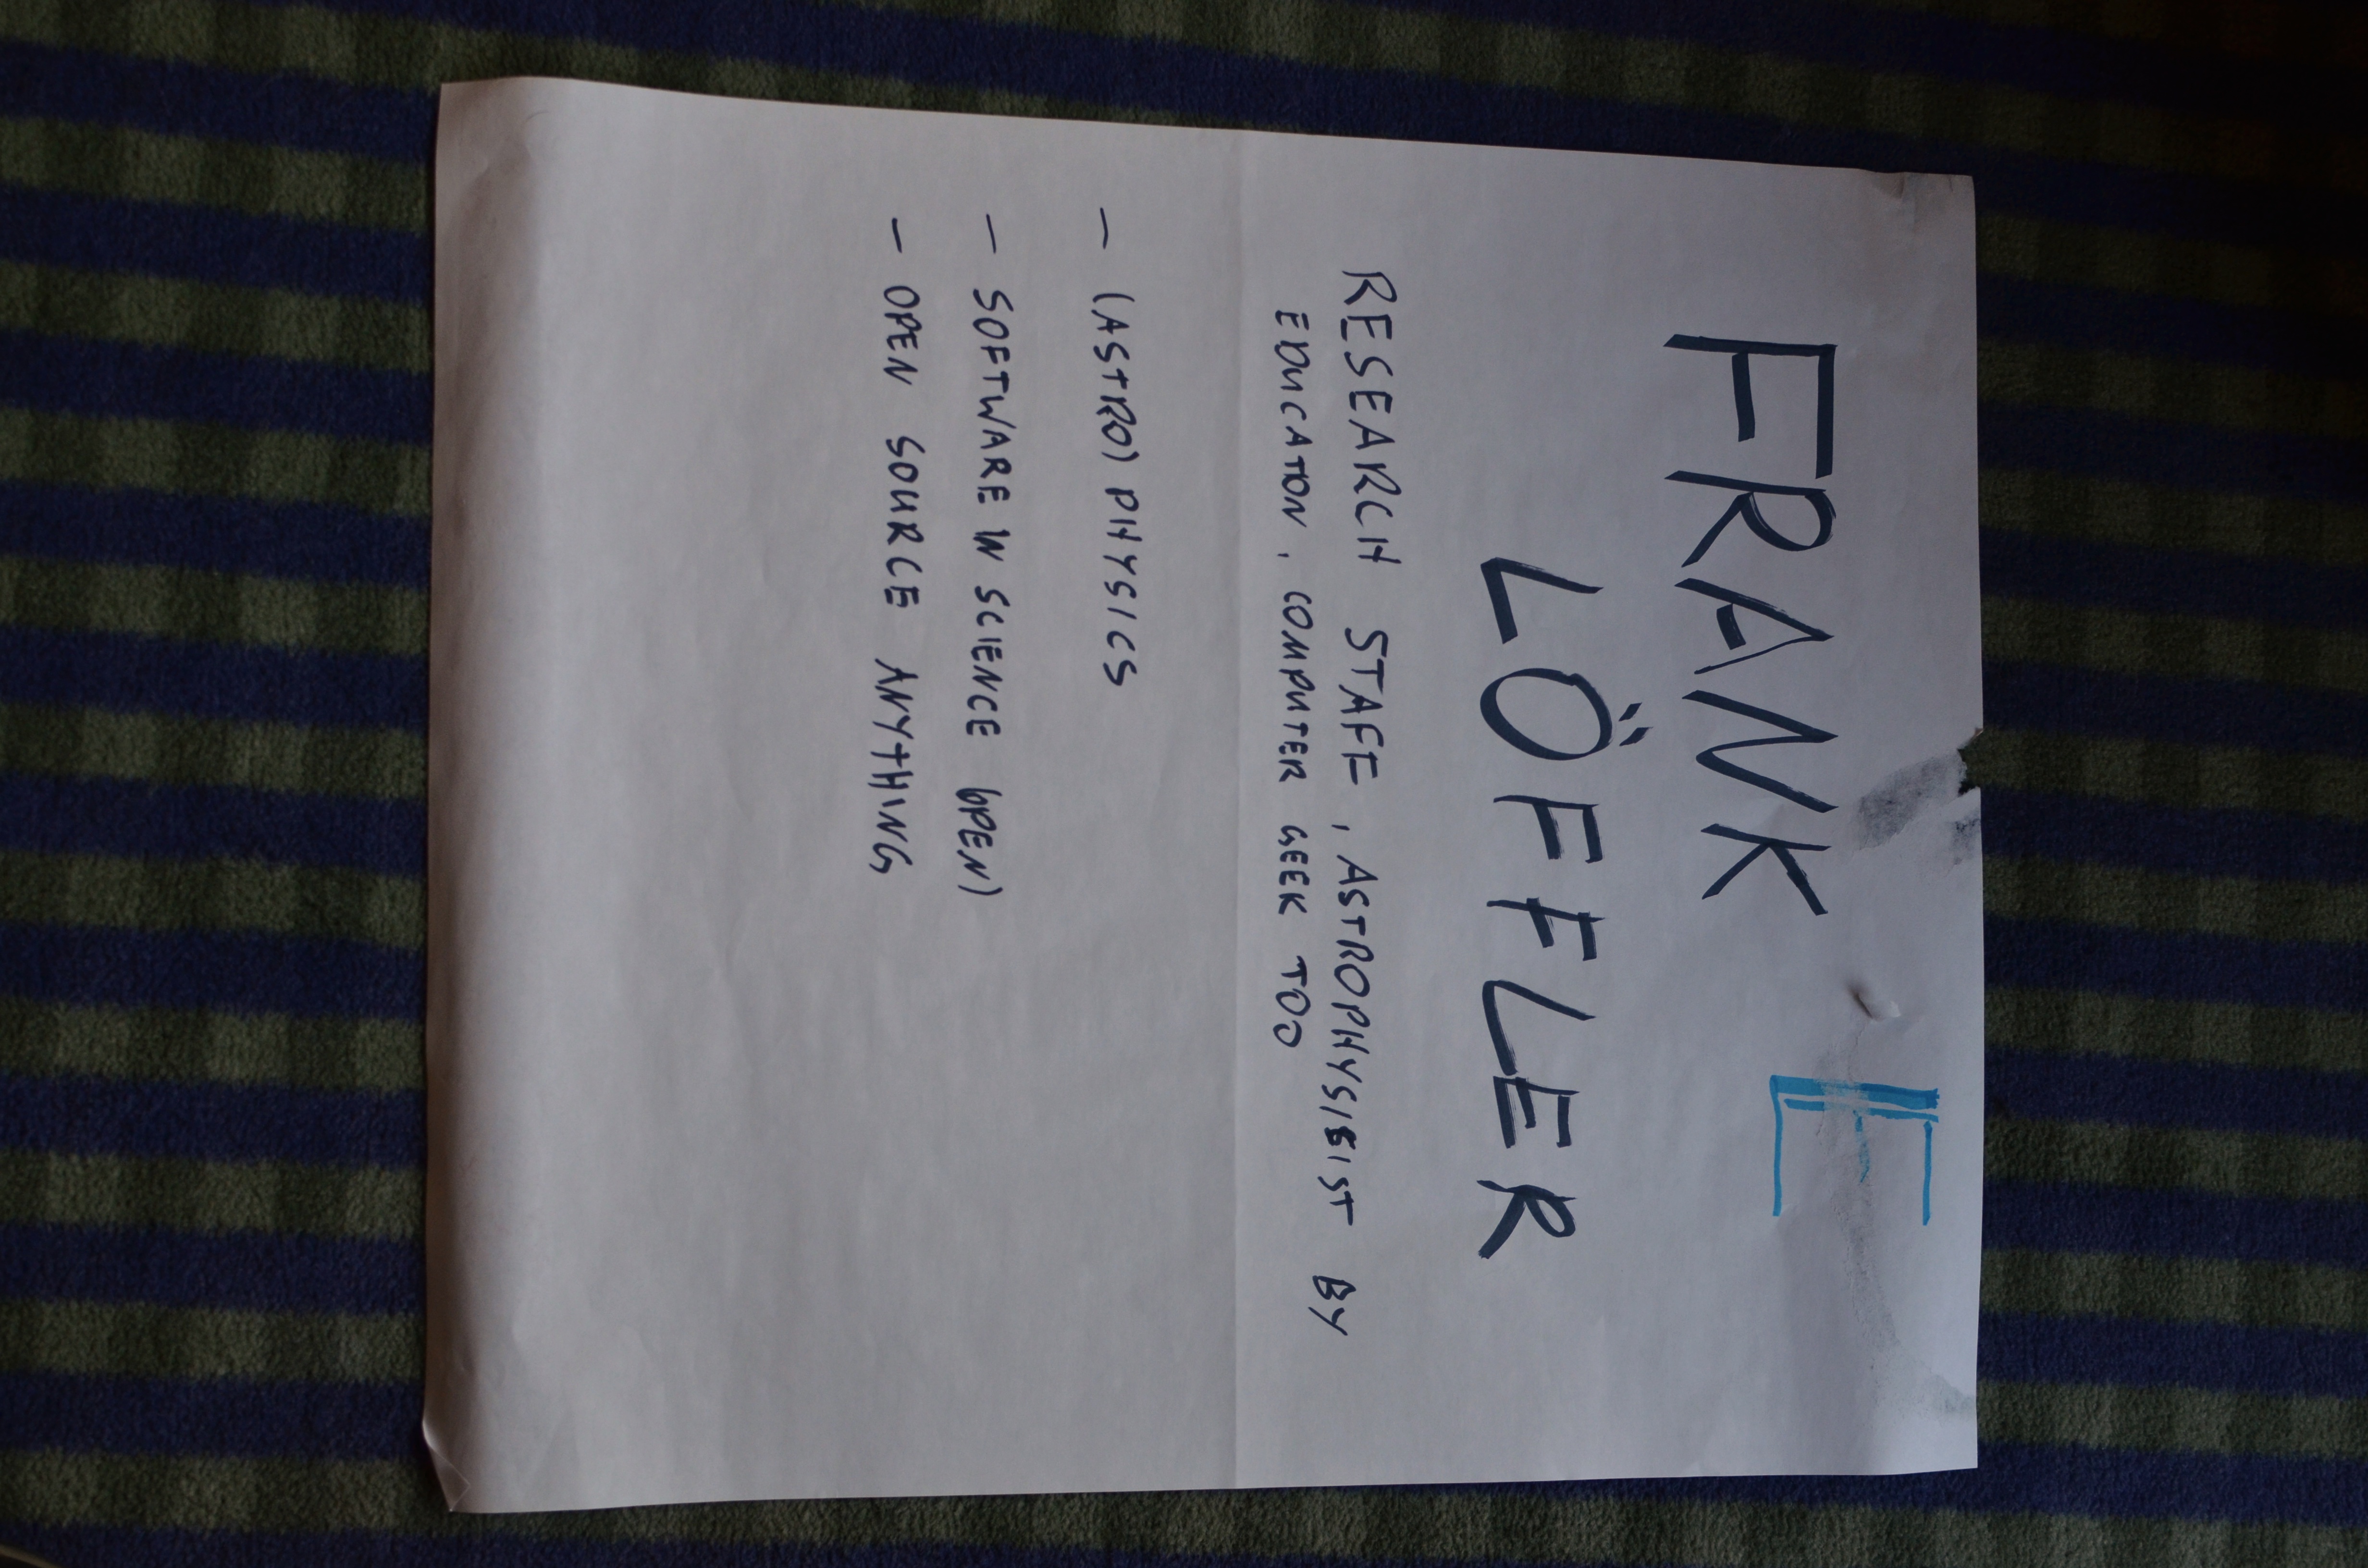 E
FRANK
LÖFFLER
RESEARCH STAFF, ASTROPHYSISIST BY
EDUCATION, COMPUTER GEEK TOO
- (ASTRO) PHYSICS
- SOFTWARE IN SCIENCE (OPEN)
- OPEN SOURCE ANYTHING